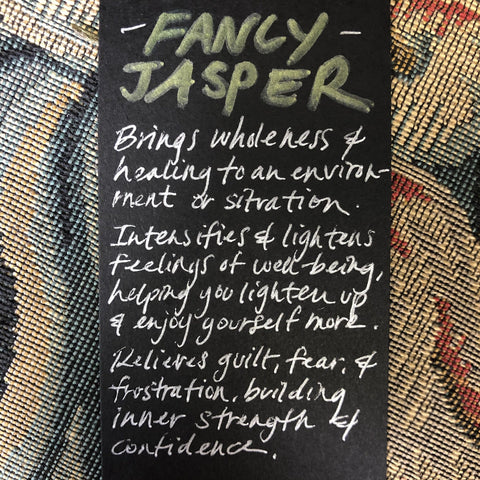 - FANCY -
JASPER
Brings wholeness &
healing to an environ-
ment or sitration.
Intensifies & lightens
feelings of well-being,
helping you lighten up
& enjoy yourself more.
Relieves guilt, fear, &
frostration, building
inner strength &
confidence.